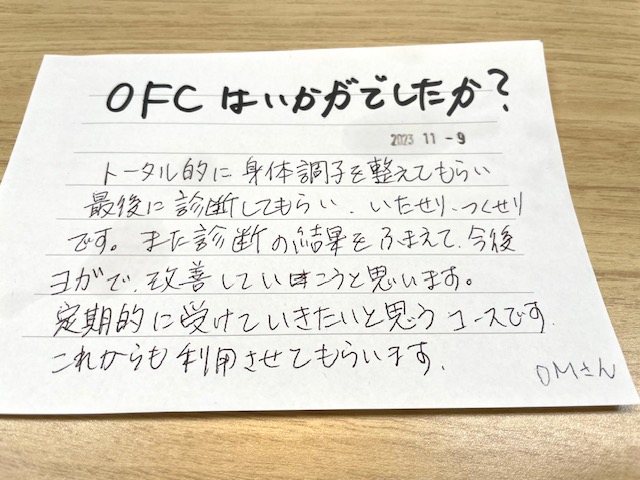 OFCはいかがでしたか?
2023 11 -9
トータル的に身体調子を整えてもらい
最後に診断してもらい、いたせり、つくせり
です。また診断の結果をふまえて、今後
ヨガで、改善していこうと思います。
定期的に受けていきたいと思うコースです.
これからも利用させてもらいます.
OMさん